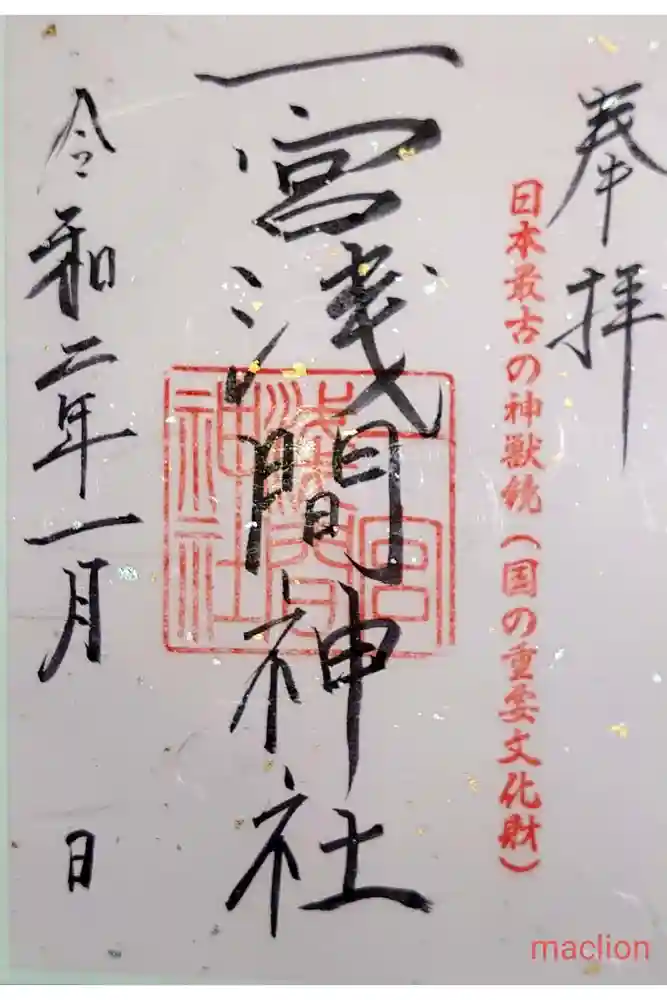 奉拝
日本最古の神獣鏡(国の重要文化財)
一宮浅間神社
一宮浅間神社
令和二年一月 日
maclion